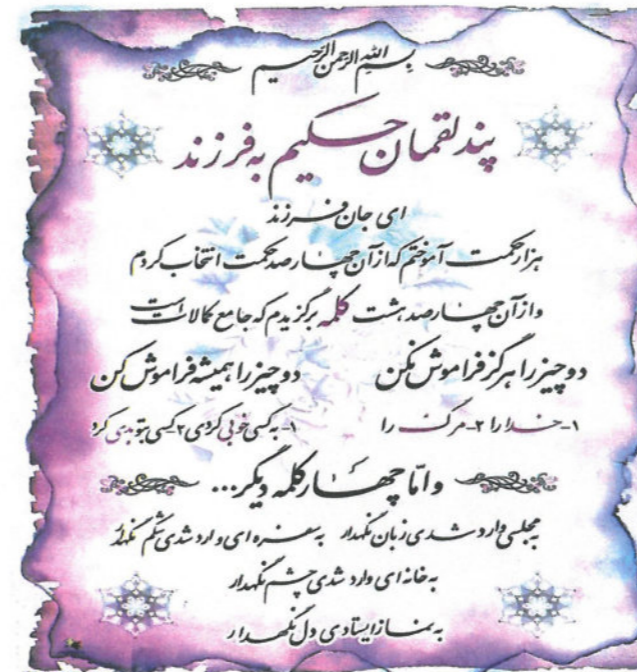 بسم الله الرحمن الرحیم
پند لقمان حکیم به فرزند
ای جان فرزند
هزار حکمت آموختم که از آن چهارصد حکمت انتخاب کردم
و از آن چهارصد هشت کلمه برگزیدم که جامع کمالات است
دو چیز را هرگز فراموش نکن
دو چیز را همیشه فراموش کن
۱- خدا را ۲- مرگ را
۱- به کسی خوبی کردی ۲ کسی بتو بدی کرد
و امّا چهار کلمه دیگر...
به مجلسی وارد شدی زبان نگهدار به سفره ای وارد شدی شکم نگهدار
به خانه ای وارد شدی چشم نگهدار
به نماز ایستادی دل نگهدار